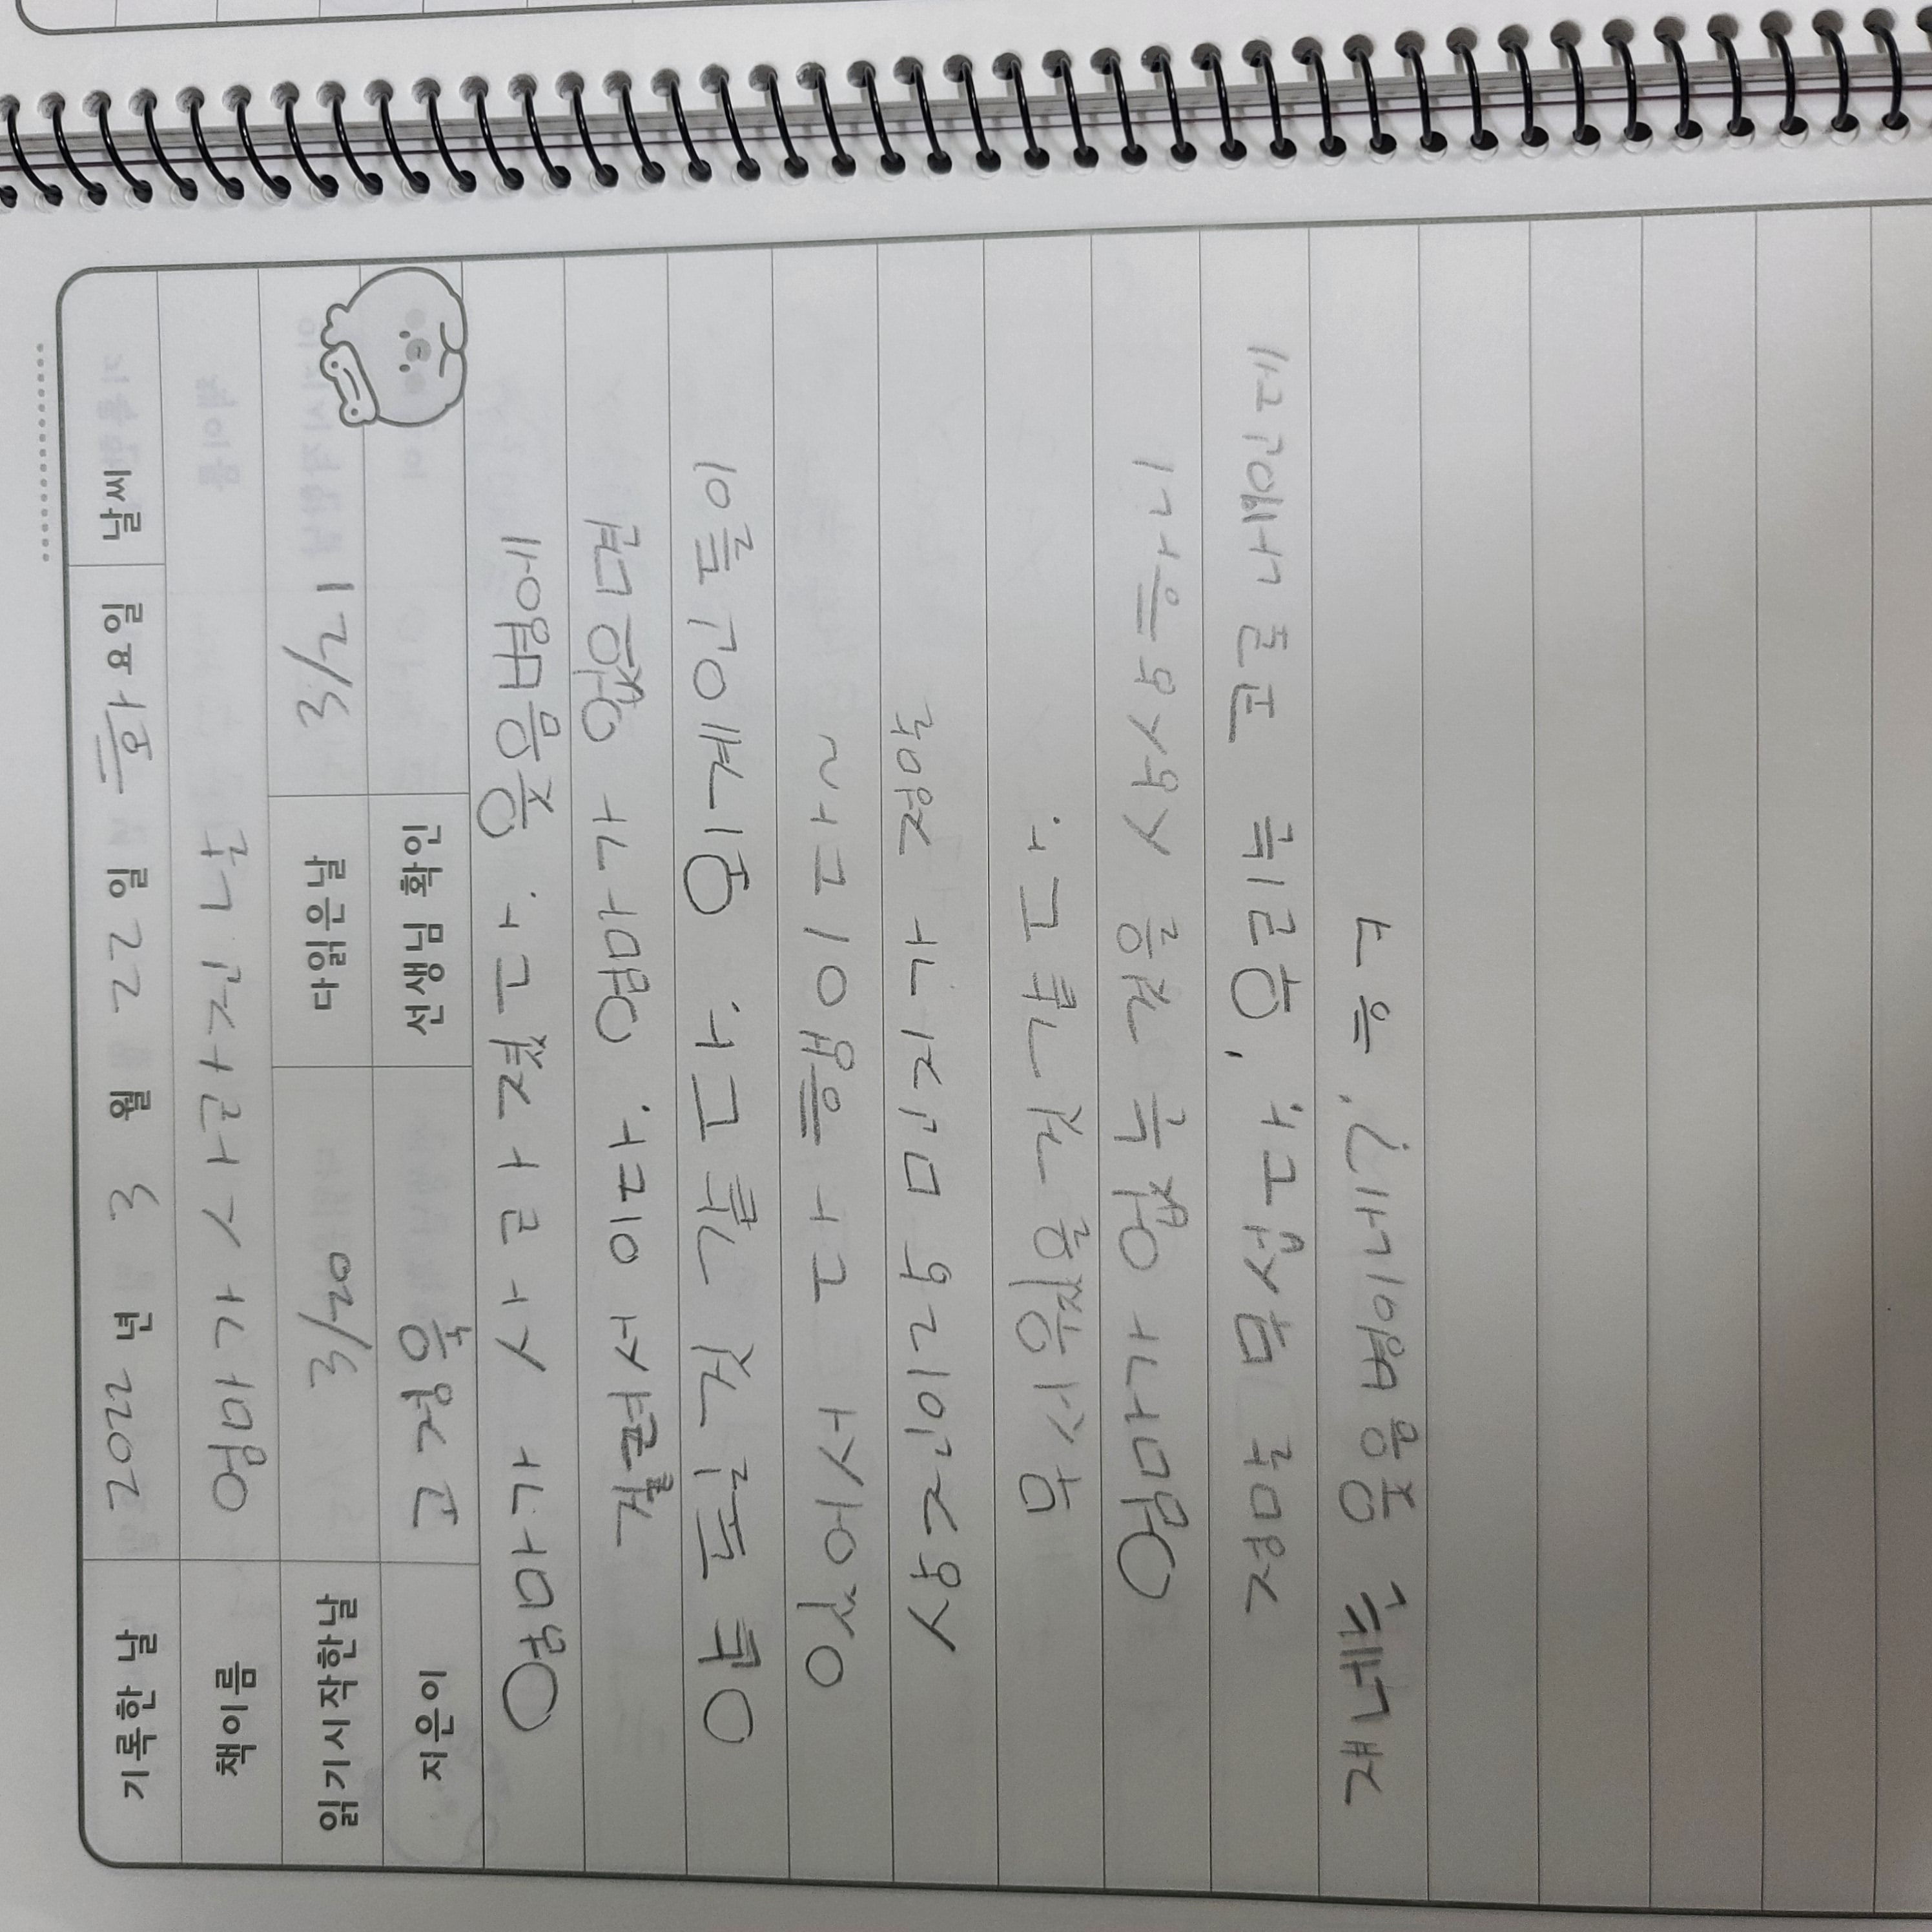 기록한 날 2022 년 3 월 22 일 화 요일 날씨
책이름 엄마가 사라진 날
읽기시작한날 3/20 다읽은날 3/21
지은이 고정욱 선생님 확인
엄마가 사라졌다. 웃음병에
걸려서 이다. 엄마가 없으면
안 될 것 같다. 외계인들이
있어서 다행이다~
상진이랑 민지가 정말
무서웠을 것 같다.
엄마가 없는 것을 상상하니
정말 무섭다. '우리는 코로나19인데
쟤네는 웃음병이네?' ㅎㅋ